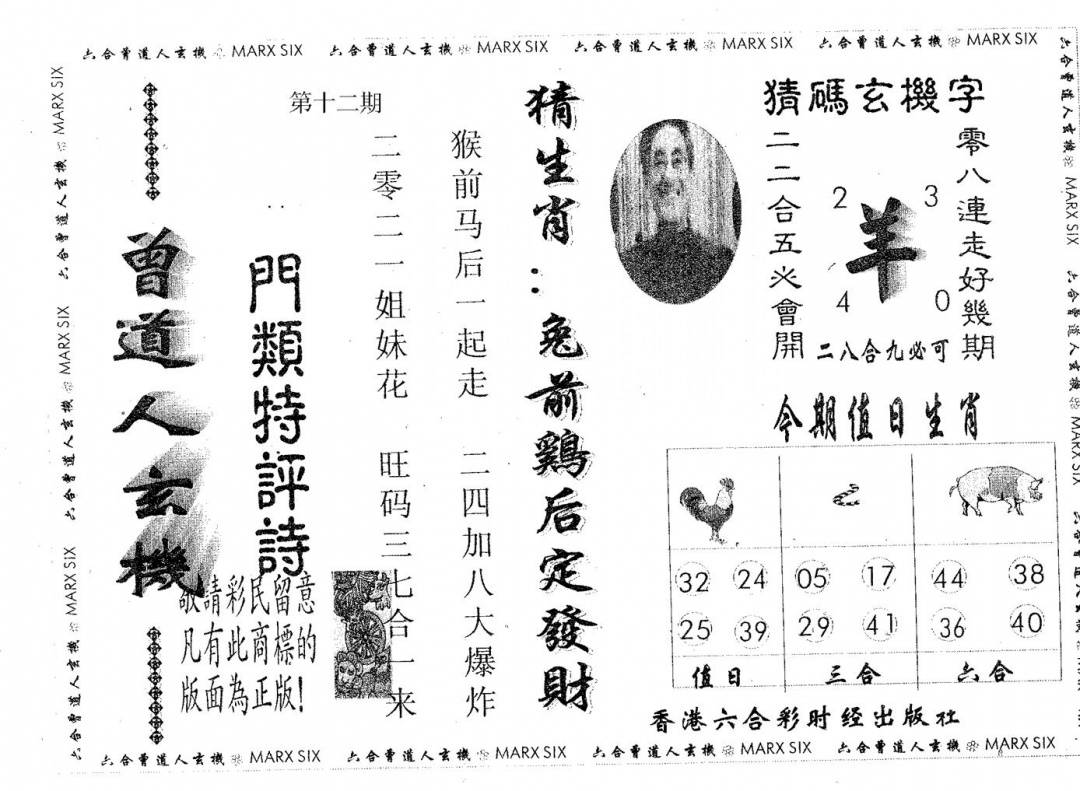 六合曾道人玄機 MARX SIX 六合曾道人玄機 MARX SIX 六合曾道人玄機 MARX SIX 六合曾道人玄機 MARX SIX
六合曾道人玄機 MARX SIX
六合曾道人玄機 MARX SIX
六合曾道人玄機 MARX SIX
六合曾道人玄機 MARX SIX
六合曾道人玄機 MARX SIX
猜碼玄機字
零八連走好幾期
2 3
羊
4 0
二八合九必可
二二合五必會開
猜生肖：兔前鷄后定發財
第十二期
猴前马后一起走 二四加八大爆炸
二零二一姐妹花 旺码三七合一来
門類特評詩
曾道人玄機
敬請彩民留意
凡有此商標的
版面為正版!
今期值日生肖
32 24 05 17 44 38
25 39 29 41 36 40
值日 三合 六合
香港六合彩财经出版社
六合曾道人玄機 MARX SIX 六合曾道人玄機 MARX SIX 六合曾道人玄機 MARX SIX 六合曾道人玄機 MARX SIX